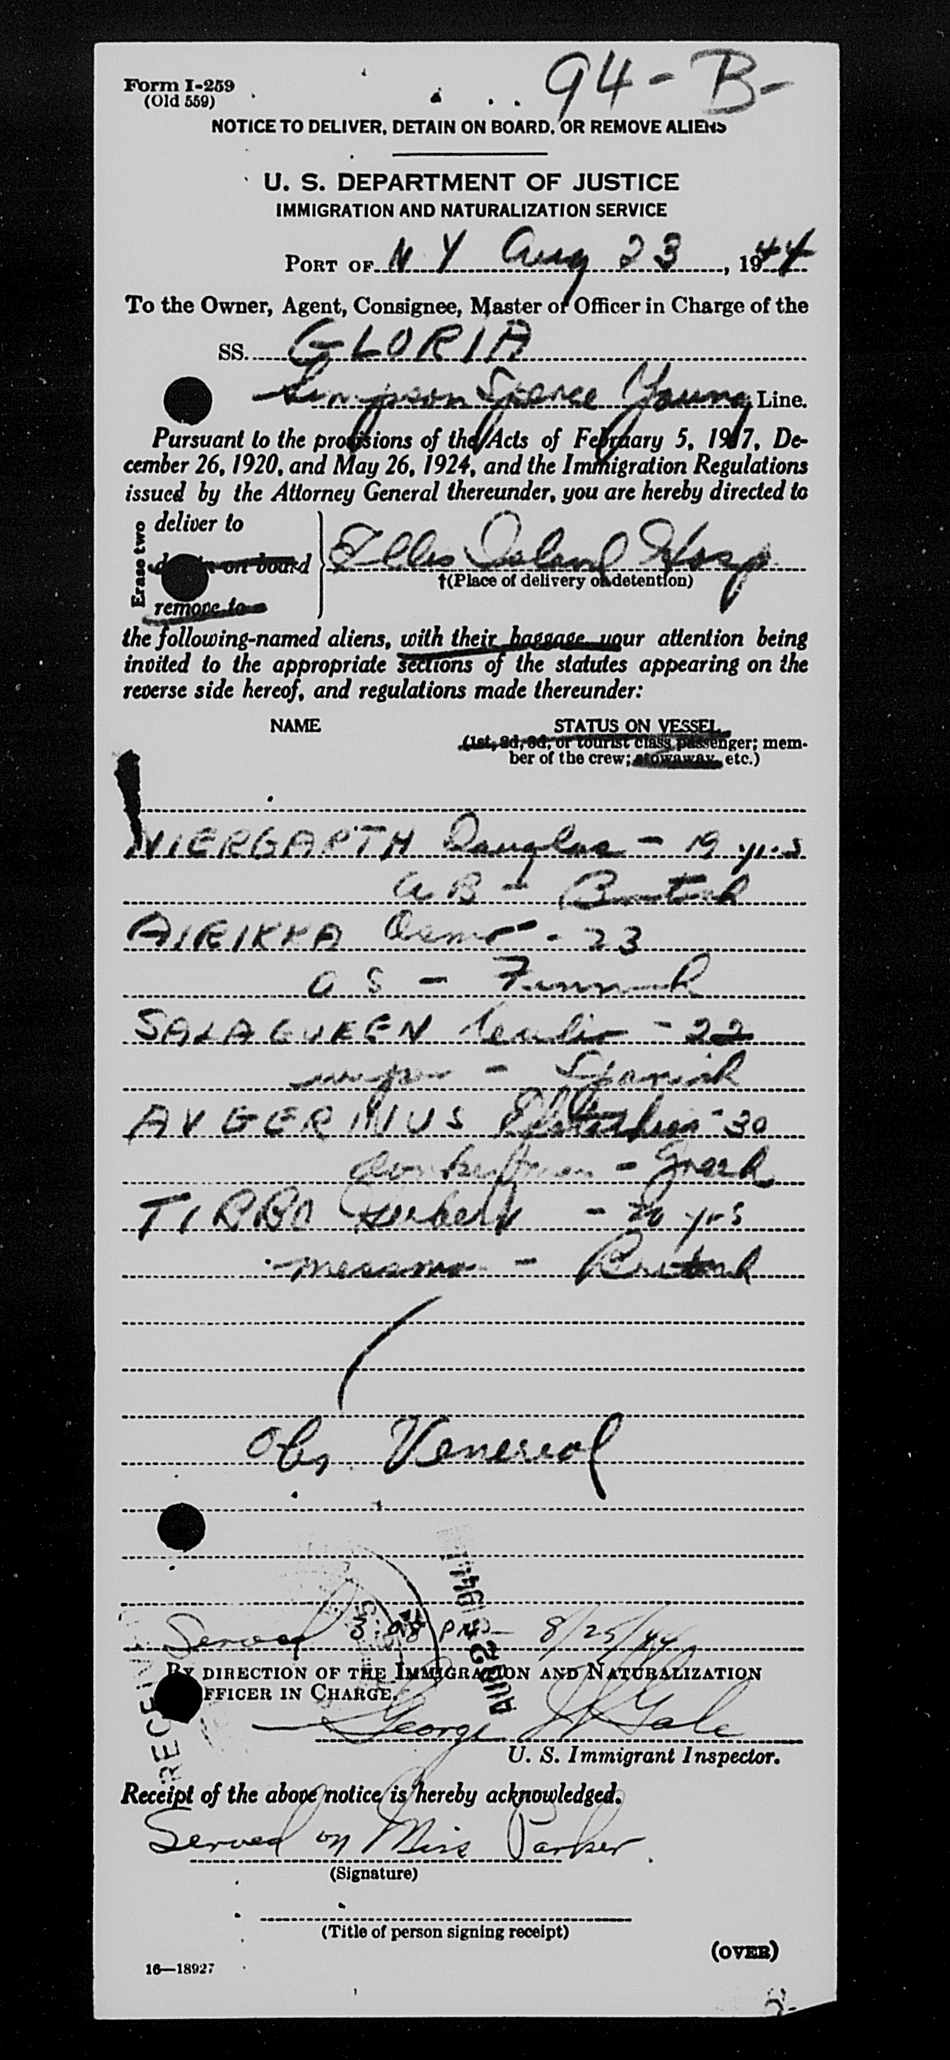 Form I-259
(Old 559)
94-B-
NOTICE TO DELIVER, DETAIN ON BOARD, OR REMOVE ALIENS
U. S. DEPARTMENT OF JUSTICE
IMMIGRATION AND NATURALIZATION SERVICE
PORT OF N Y Aug 23, 1944
To the Owner, Agent, Consignee, Master or Officer in Charge of the
SS. GLORIA
Simpson Spence Young Line.
Pursuant to the provisions of the Acts of February 5, 1917, De-
cember 26, 1920, and May 26, 1924, and the Immigration Regulations
issued by the Attorney General thereunder, you are hereby directed to
Erase two
deliver to
on board
remove to
Ellis Island Hosp
†(Place of delivery or detention)
the following-named aliens, with their baggage your attention being
invited to the appropriate sections of the statutes appearing on the
reverse side hereof, and regulations made thereunder:
NAME STATUS ON VESSEL
(1st, 2d, 3d, or tourist class passenger; mem-
ber of the crew; stowaway, etc.)
VIERGARTH Douglas - 19 yrs
AB - British
AIRIKKA - 23
O S - Finnish
- 22
wiper - Spanish
AVGERINUS - 30
- Greek
Herbert - 20 yrs
messman - British
Obs. Venereal
Served 3:08 PM - 8/25/44
BY DIRECTION OF THE IMMIGRATION AND NATURALIZATION
OFFICER IN CHARGE.
George W Gale
U. S. Immigrant Inspector.
Receipt of the above notice is hereby acknowledged.
Served on Miss Parker
(Signature)
(Title of person signing receipt)
(OVER)
16—18927